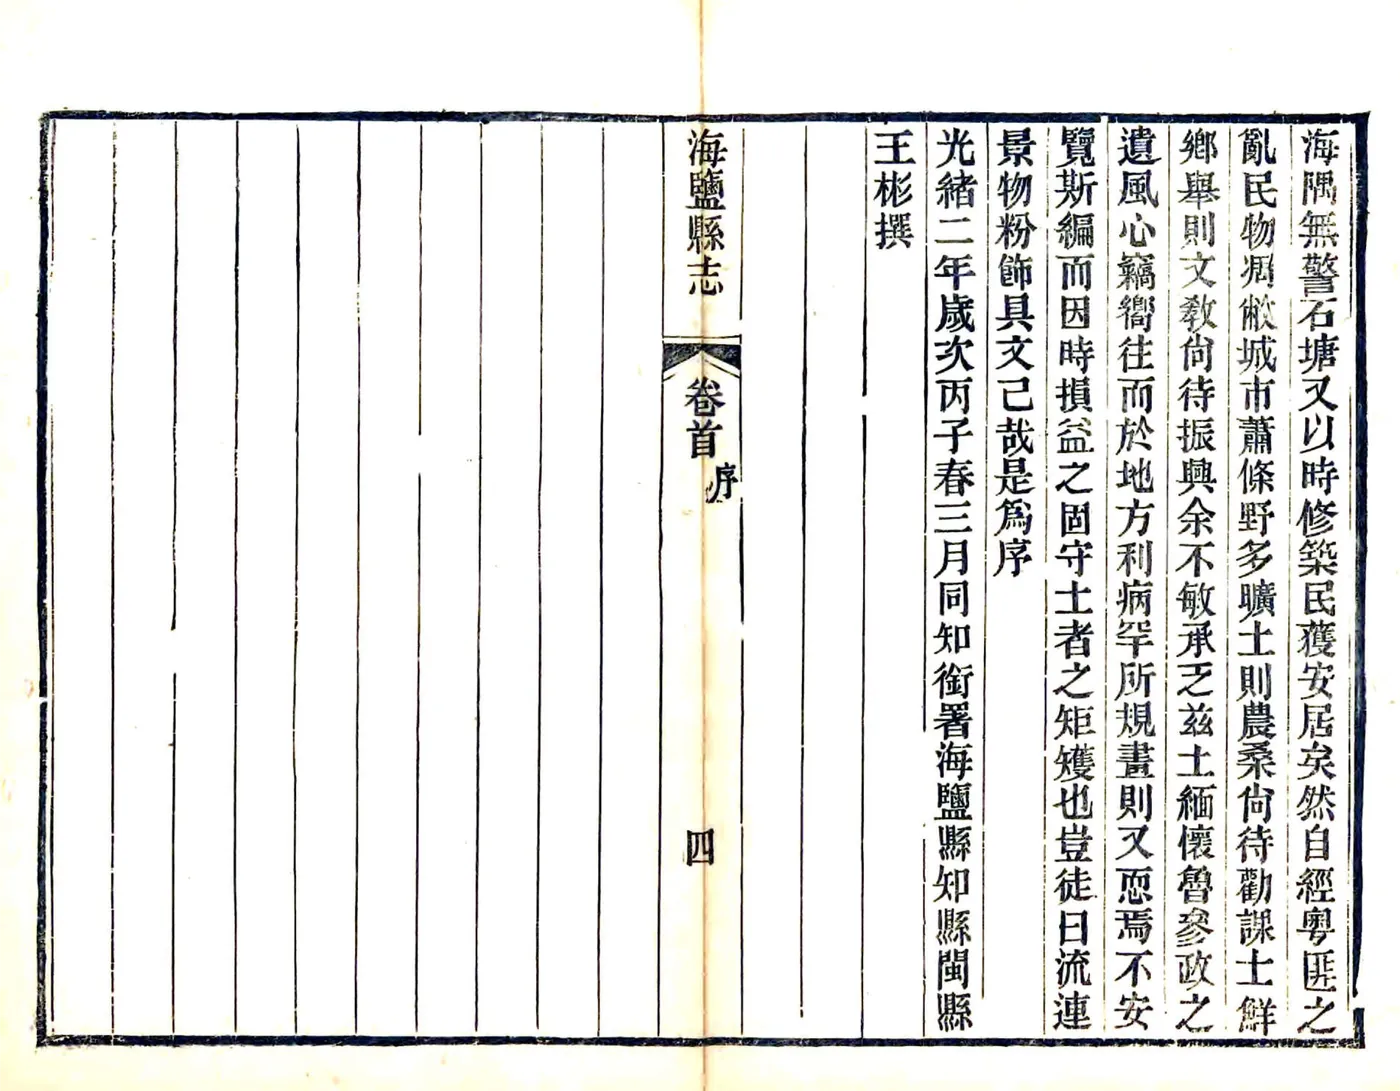 海隅無警石塘又以時修築民獲安居矣然自經粵匪之
亂民物凋敝城市蕭條野多曠土則農桑尙待勸課士鮮
鄉舉則文敎尙待振興余不敏承乏茲土緬懷魯參政之
遺風心竊嚮往而於地方利病罕所規畫則又恧焉不安
覽斯編而因時損益之固守土者之矩矱也豈徒曰流連
景物粉飾具文己哉是爲序
光緒二年歲次丙子春三月同知銜署海鹽縣知縣閩縣
王彬撰
海鹽縣志
卷首
序
四